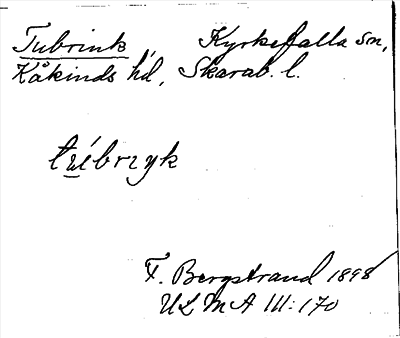 Tubrink, Kyrkefalla sn,
Kåkinds hd, Skarab. l.
F. Bergstrand 1898
ULMA III:170